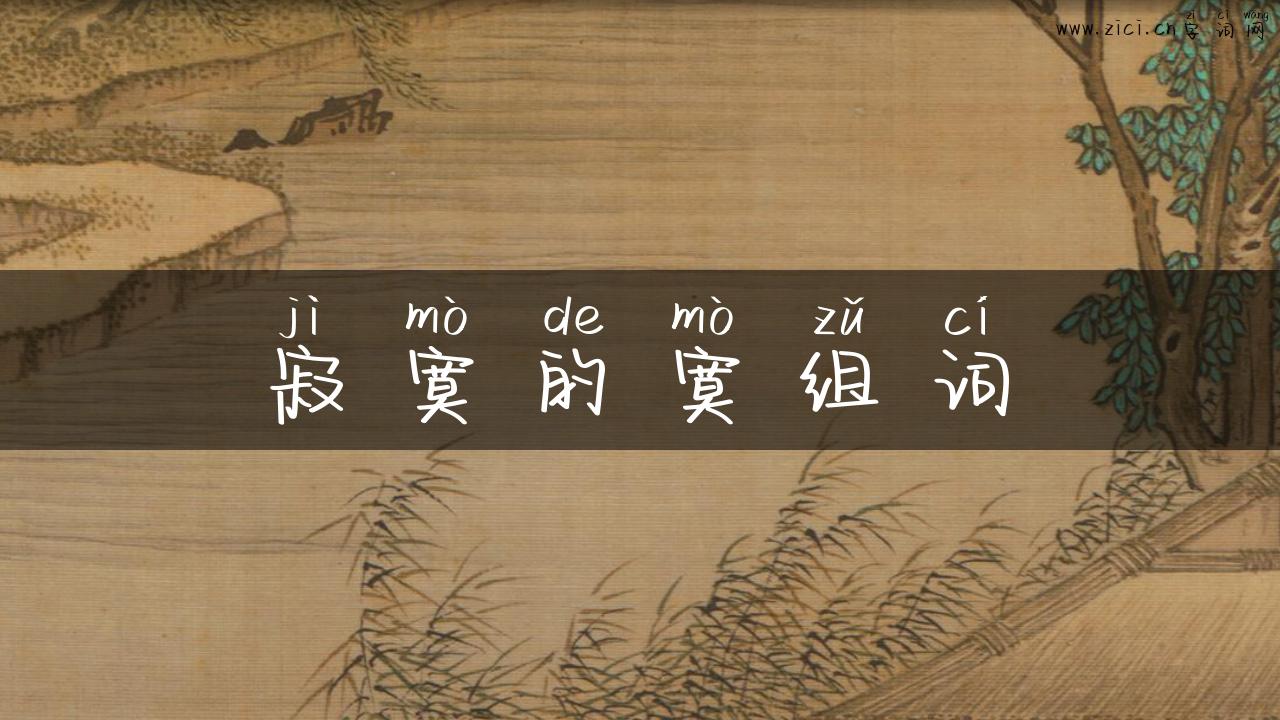 zì cí wǎng
www.zici.cn字词网
jì mò de mò zǔ cí
寂寞的寞组词